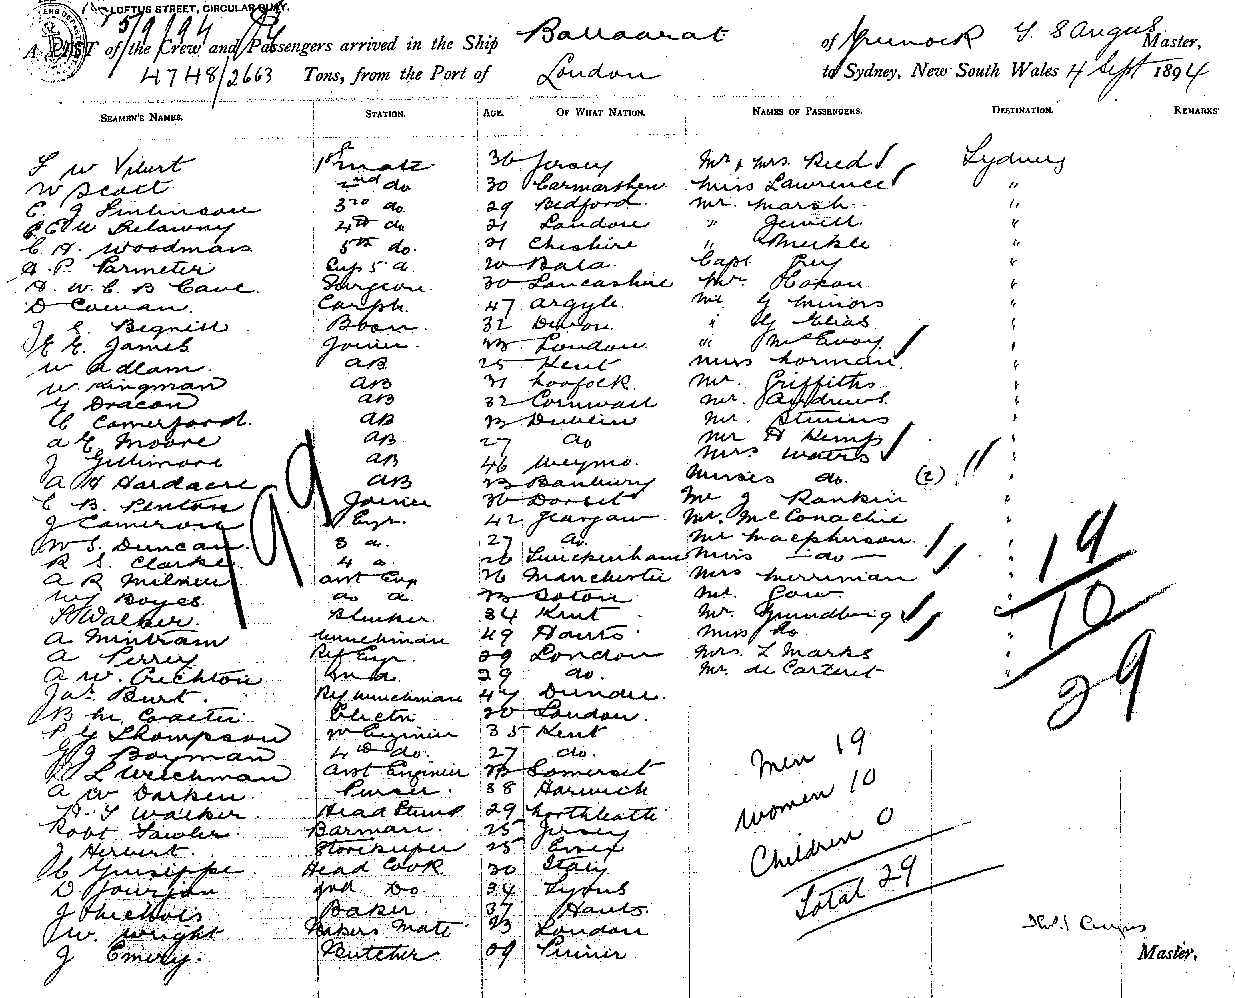 LOFTUS STREET, CIRCULAR QUAY.
5/9/94
A LIST of the Crew and Passengers arrived in the Ship Ballaarat of Greenock T. S Angus Master,
4748/2663 Tons, from the Port of London to Sydney, New South Wales 4 Sept 1894
SEAMEN'S NAMES. STATION. AGE. OF WHAT NATION. NAMES OF PASSENGERS. DESTINATION. REMARKS
F W Vibert 1st mate 36 Jersey Mr & Mrs Reed Sydney
W Scott 2nd do 30 Carmarthen Miss Lawrence "
E. J Tomlinson 3rd do. 29 Bedford. Mr. Marsh "
4th do 21 London " Jewitt "
C. H. Woodman 5th do. 21 Cheshire " Meikle "
A P. Parmeter Sup 5 do. 20 Bala. Capt. "
H. W. C. B Cave. Surgeon. 30 Lancashire Mr. "
D Cowan. Carptr. 47 Argyle. Mr G Minors "
J S. Bignill Bosn. 32 Devon. " G Elias "
E G. James Joiner 23 London. " McEvoy "
W Adlam. AB 25 Kent Miss Norman "
W. Kingman AB 31 Norfolk Mr. Griffiths "
G Deacon AB 32 Cornwall Mr. Andrews "
C Comerford. AB 23 Dublin Mr. Stevens "
A G Moore AB 27 do Mr H Kemp "
J Gillimore AB 46 Weymo. Mrs Waters "
A H Hardacre AB 23 Banbury Misses do. (2) "
E B. Penton Joiner 36 Dorset Mr J Rankin "
J Cameron Engr. 42 Glasgow Mr. McConachie "
W S. Duncan 3 do. 27 do. Mr Macpherson "
R S. Clarke. 4 do. 26 Twickenham Miss do "
A R Milner asst Eng 26 Manchester Mrs Merriman "
W Boyes. do do. 23 Mr. Gow "
Walker. 34 Kent Mr. Grundberg "
A Mintram Winchman 49 Hants. Miss do "
A Perrey Ref Engr. 29 London Mrs L Marks "
A W. Crichton 2nd do 29 do. Mr. de Carteret "
Jas Burt. Ref Winchman 47 Dundee.
B M. Coaster Electn 20 London.
P G Thompson Engineer 35 Kent
G J Boyman 4th do. 27 do.
L Weichman asst Engineer 23 Somerset
A W Darken Purser. 38 Harwich
H. T Walker Head Stewd 29 Northleatte
Robt Fowler Barman. 25 Jersey
J Herbert Storekeeper 25 Essex
C Guiseppe Head Cook 30 Italy
D Jourjon 2nd Do 34 Lyons
J Nichols Baker 37 Hants.
J W. Wright Bakers Mate 23 London
J Emery. Butcher 29 Pinner
199
19
10
29
Men 19
Women 10
Children 0
Total 29
Angus
Master.